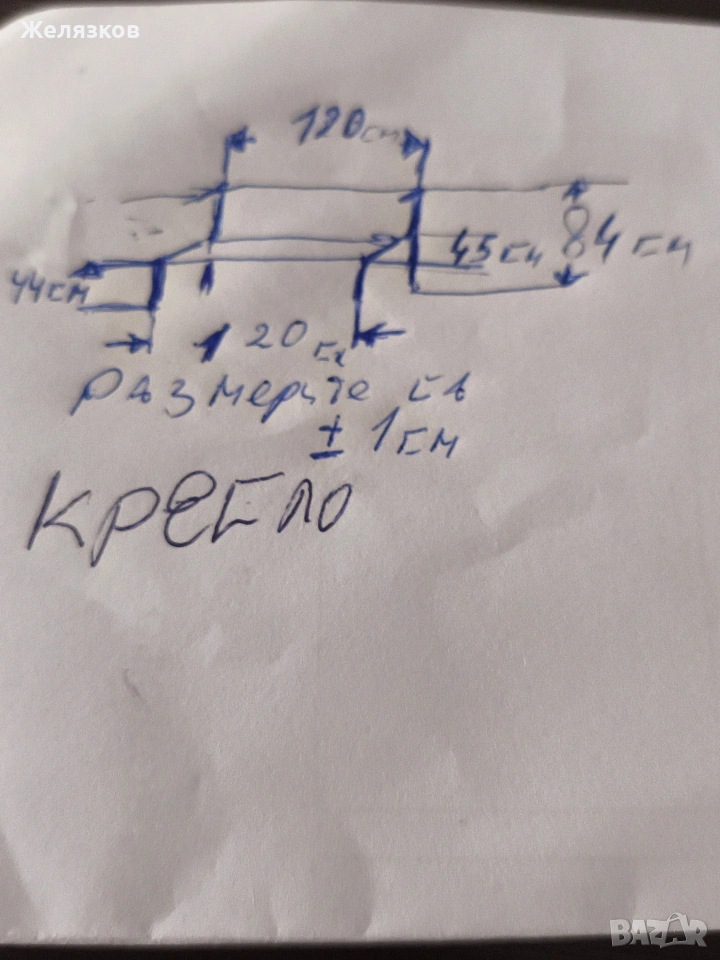 Желязков
120 см
45 см
84 см
44 см
120 см
Размерите са
± 1 см
кресло
BAZAR